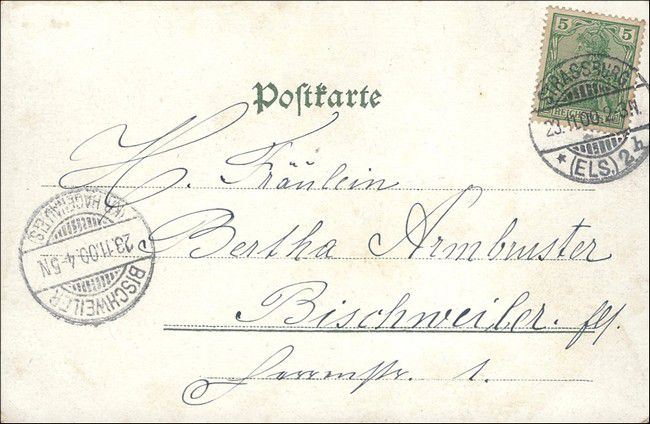 Postkarte
5 5
STRASSBURG
23.11.00. 2-3N.
* (ELS.) 2 h
H. Fräulein
Bertha Armbruster
Bischweiler. Els.
1.
(KR. HAGENAU) ELS.
23.11.00. 4-5N.
BISCHWEILER